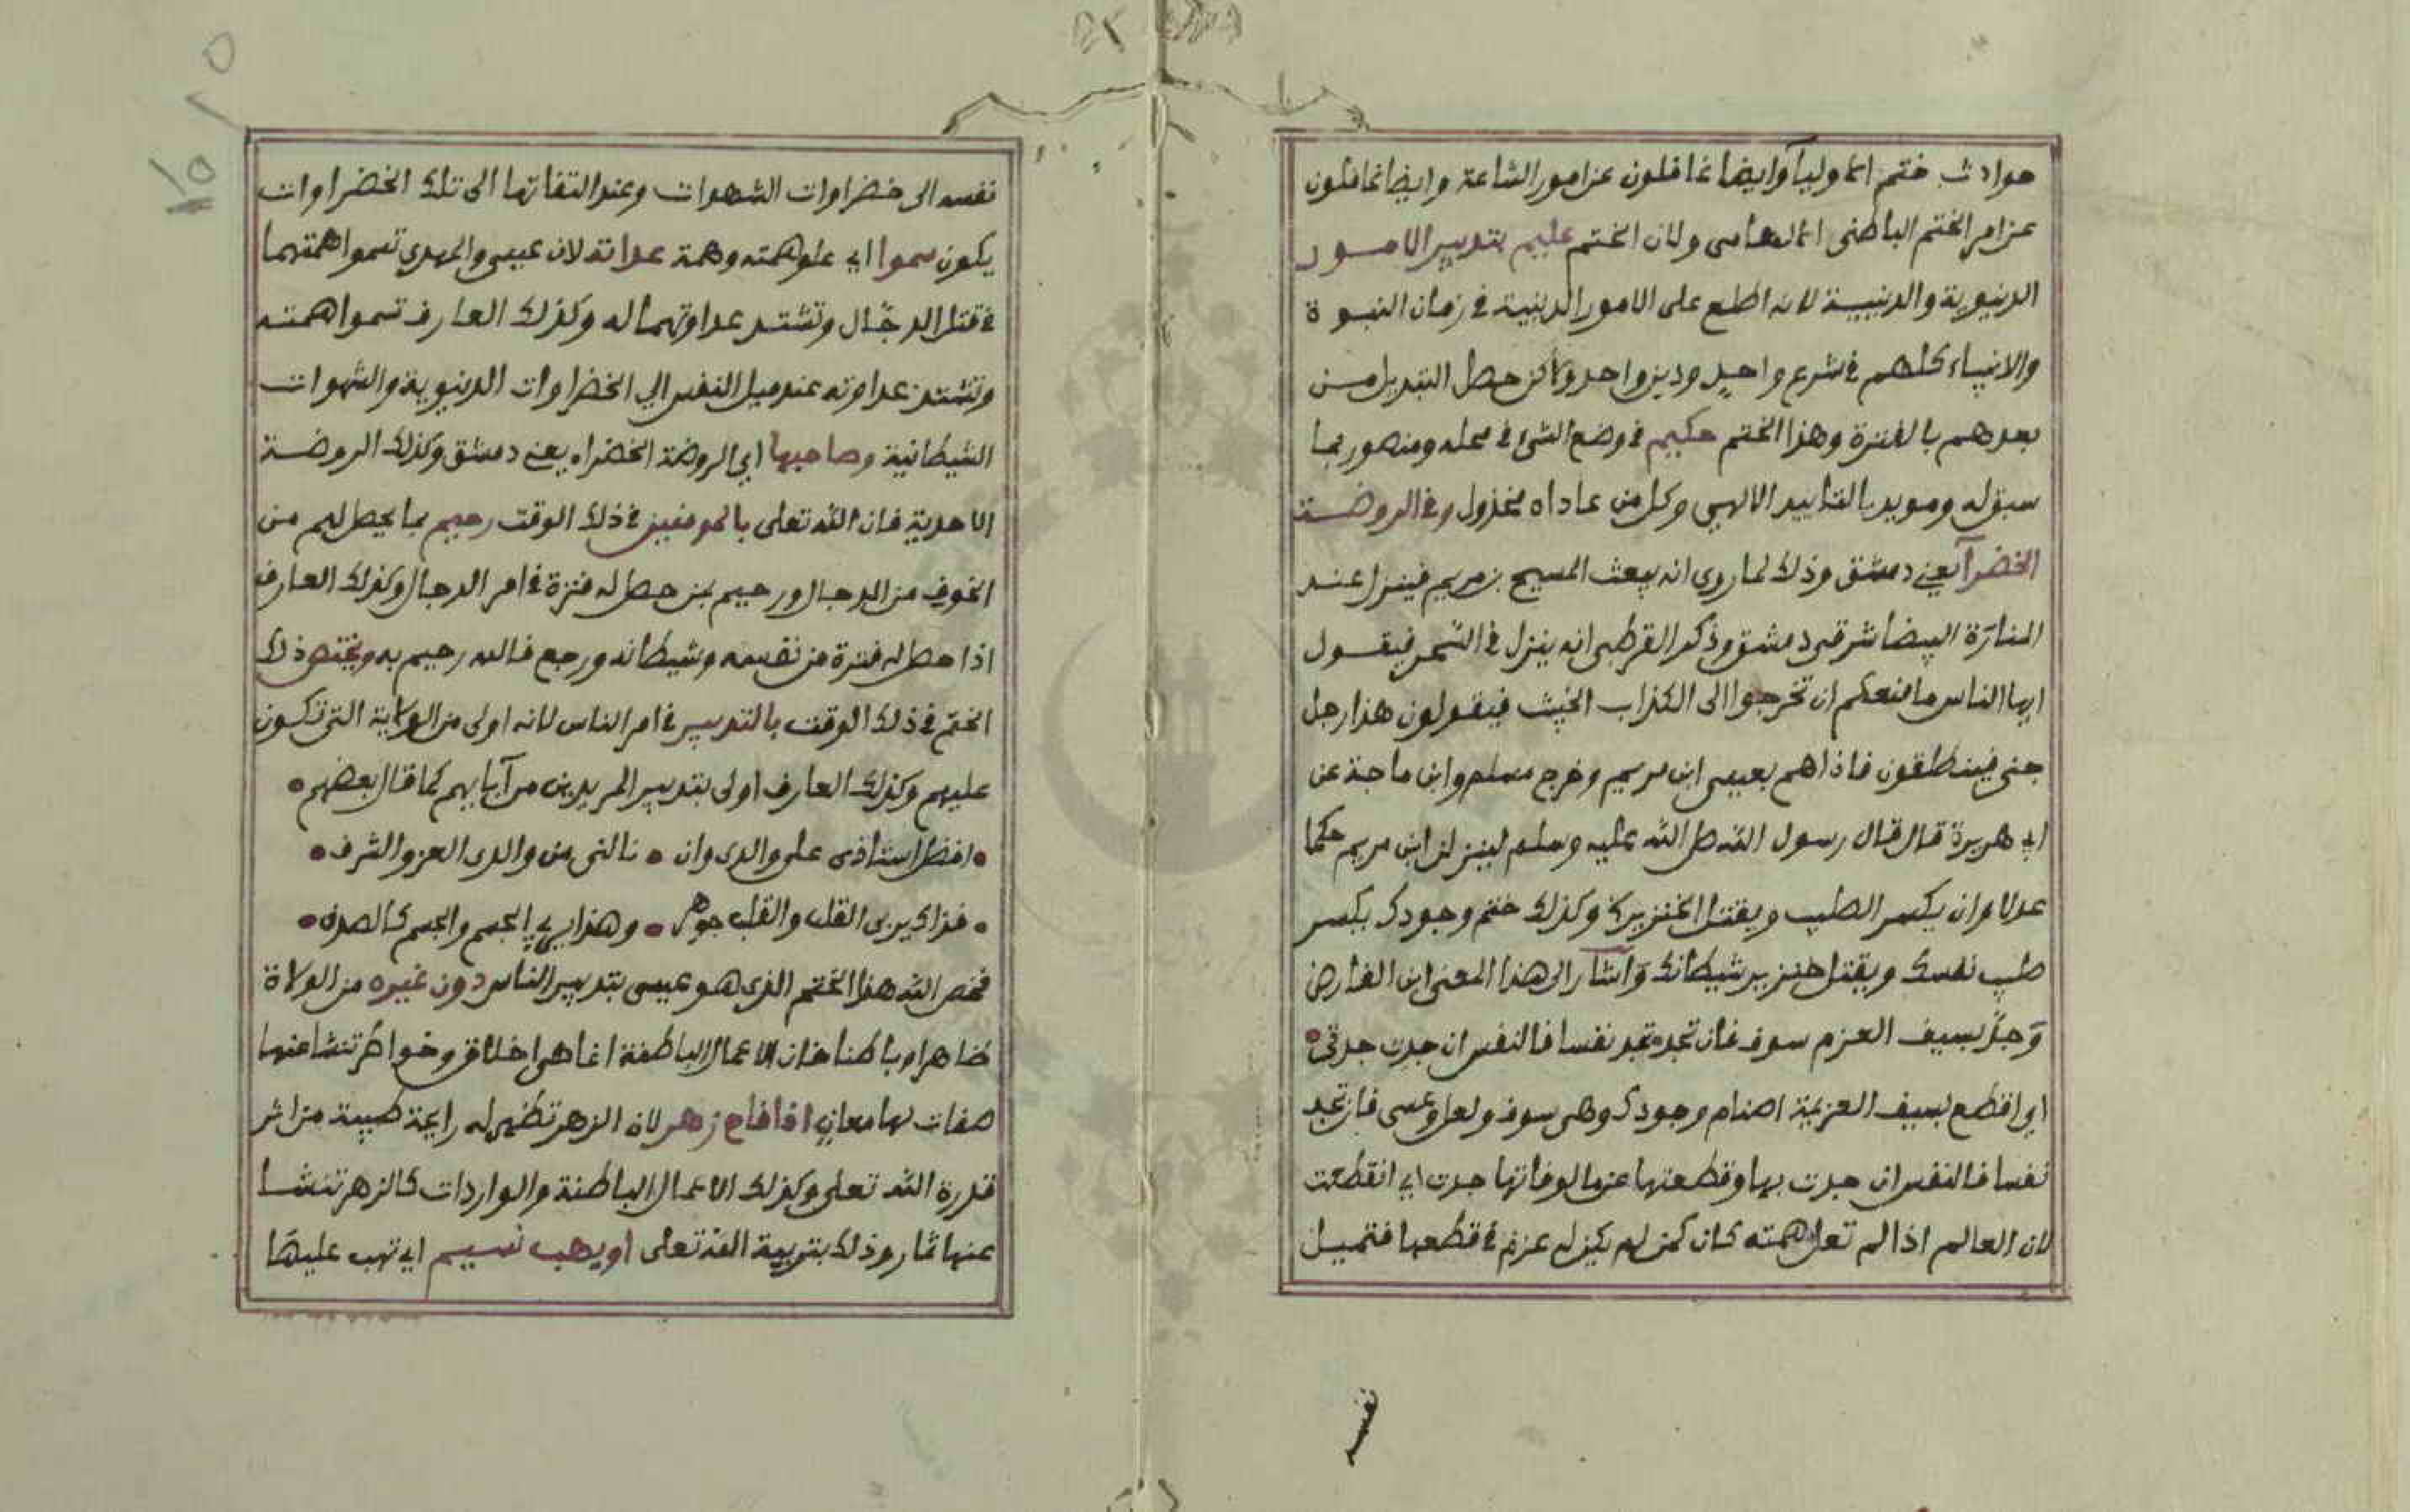 حوادث ختم الاوليآ وايضا غافلون عن امور الساعة وايضا غافلون
عن امر الختم الباطنى ولان الختم عليم بتدبير الامور
الدنيوية والدينية لانه اطلع على الامور الدينية في زمان النبوة
والانبياء كلهم في شرع واحد ودين واحد ولاكن حصل التبديل من
بعدهم بالفترة وهذا الختم حكيم في وضع الشئ في محله ومنصور بما
سبق له ومويد بالتاييد الالهي وكل من عاداه مخذول وفي الروضة
الخضرآ يعني دمشق وذلك لما روى انه يبعث المسيح بن مريم فينزل عند
المنارة البيضا شرقي دمشق وذكر القرطبى انه ينزل في السحر فيقول
ايها الناس ما منعكم ان تخرجوا الى الكذاب الخبيث فيقولون هذا رجل
جنى فينطلقون فاذاهم بعيسى ابن مريم وخرج مسلم وابن ماجة عن
ابي هريرة قال قال رسول الله صل الله عليه وسلم لينزلن ابن مريم حكما
عدلا وان يكسر الصليب ويقتل الخنزير وكذلك ختم وجودك يكسر
صليب نفسك ويقتل خنزير شيطانك وآشار الى هذا المعنى ابن الفارض
وجذ بسيف العزم سوف فان تجد تجد نفسا فالنفس ان جدت جدتي
اي اقطع بسيف العزيمة اصنام وجودك وهى سوف ولعل وعسى فان تجد
نفسا فالنفس ان جدت بها وقطعتها عن مالوفاتها جدت اي انقطعت
لان العالم اذا لم تعل همته كان كمن لم يكن له عزم في قطعها فتميل
نفسه
نفسه الى خضراوات الشهوات وعند التفاتها الى تلك الخضراوات
يكون سموا اي علو همته وهمة عداته لان عيسى والمهدى تسموا همتهما
في قتل الدجّال وتشتد عداوتهما له وكذلك العارف تسموا همته
وتشتد عداوته عند ميل النفس الي الخضراوات الدنيوية والشهوات
الشيطانية وصاحبها اي الروضة الخضراء يعني دمشق وكذلك الروضة
الاحدية فان الله تعلى بالمومنين في ذلك الوقت رحيم بما يحصل لهم من
الخوف من الدجال ورحيم بمن حصل له فترة في امر الدجال وكذلك العارف
اذا حصل له فترة من نفسه وشيطانه ورجع فالله رحيم به ويختص ذلك
الختم في ذلك الوقت بالتدبير في امر الناس لانه اولى من الولاية التى تكون
عليهم وكذلك العارف اولى بتدبير المريدين من آبايهم كما قال بعضهم •
• افضل استاذى على والدى وان • نالنى من والدى العز والشرف •
• فذاك يربى القلب والقلب جوهر • وهذا يربي الجسم والجسم كالصدف •
فخص الله هذا الختم الذى هو عيسى بتدبير الناس دون غيره من الولاة
ظاهرا وباطنا فان الاعمال الباطنة انما هى اخلاق وخواطر تنشا عنها
صفات لها معاني افافاح زهر لان الزهر تظهر له رايحة طيبة من اثر
قدرة الله تعلى وكذلك الاعمال الباطنة والواردات كالزهر تنشا
عنها ثمار وذلك بتربية الله تعلى او يهب نسيم اي تهب عليها